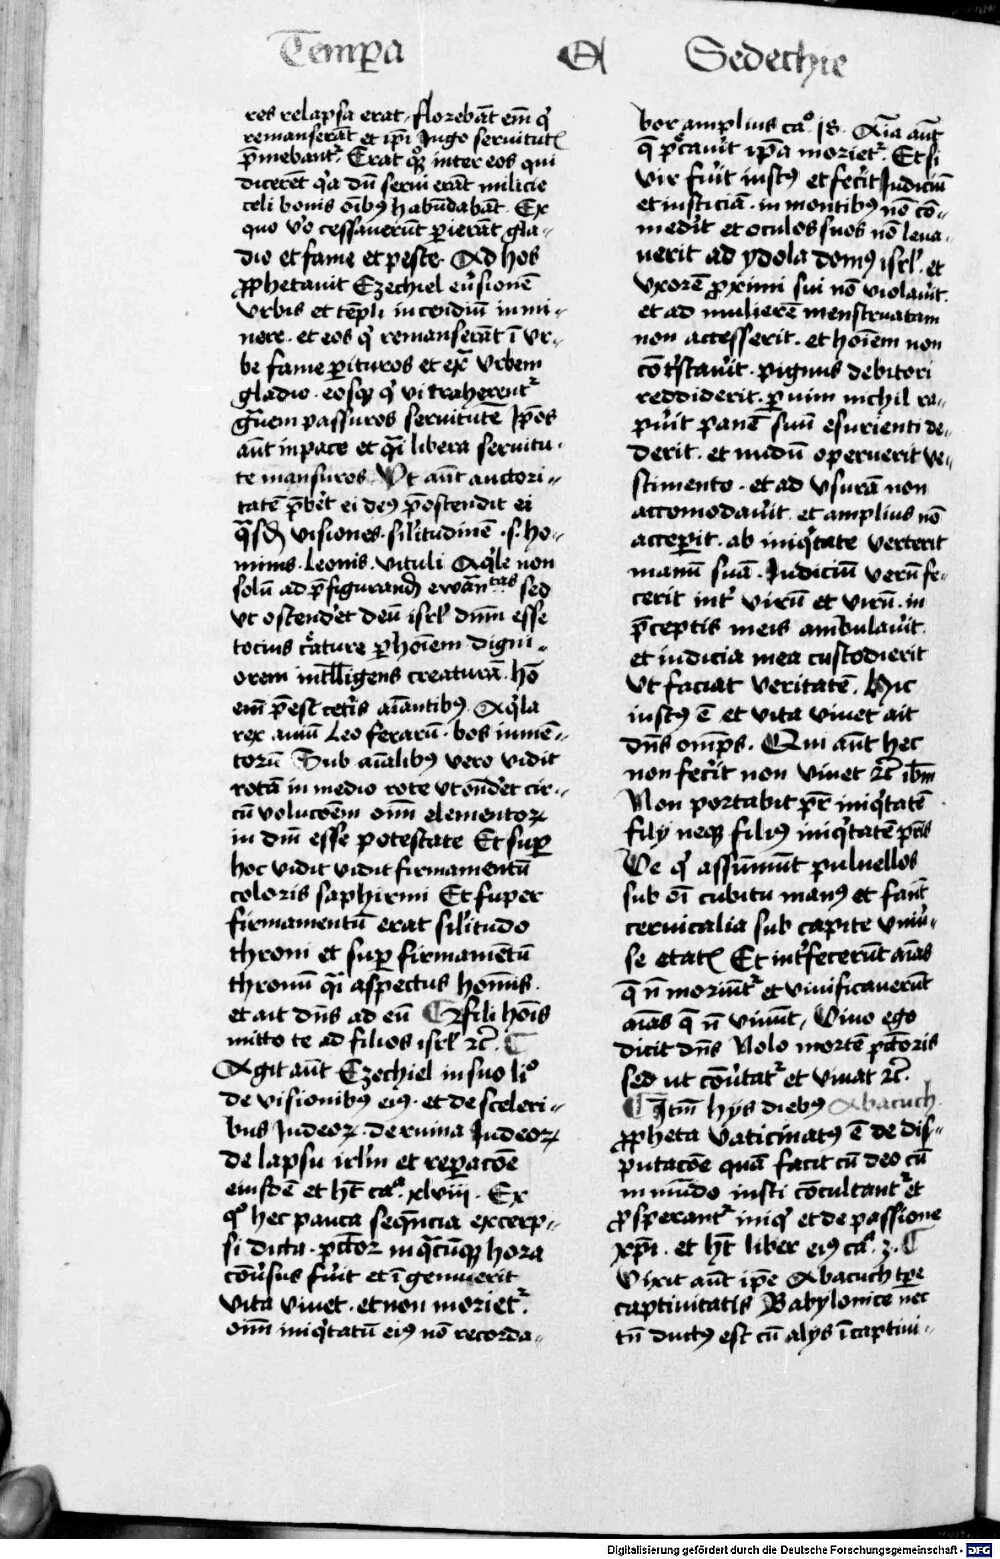 Tempa A Sedechie
res relapsa erat. florebāt em̄ qͥ
remanserāt et ip̄i Jugo seruitutꝭ
p̄mebantʳ. Erat qꝫ inter eos qui
dicerēt qͥa dū serui erāt milicie
celi bonis oībꝰ habūdabāt. Ex
quo vͦo cessauerūt ꝑierāt gla-
dio et fame et peste. Ad hos
ꝓphetauit Ezechiel eūsionē
vrbis et tēpli incendiū inmi-
nere. et eos qͥ remanserāt ī vr-
be fame ꝑituros et ext̄ vrbem
gladio. eosqꝫ qͥ vi traherentʳ
gͣuem passuros seruitutē Ip̄os
aūt in pace et qͣi libera seruitu-
te mansuros. Vt aūt auctori-
tatē p̄bet ei deꝰ p̄ostendit ei
qͣsdā visiones. silitudinē .s. ho-
minis. Leonis. vituli Aqͥle non
solū ad p̄figurandā ewāntas sed
vt ostenderet deū isrl' dnm̄ esse
tocius cͤature ꝑ hoīem digni-
orem intlligens creaturā. hō
em̄ p̄est cetis aīantibꝰ. Aqͥla
rex auiū Leo ferarū. bos iumē-
torū Sub aīalibꝰ vero vidit
rotā in medio rote vt ondet cir-
cū volucōem oīm elementoꝝ
in dīn esse potestate Et suꝑ
hoc vidit vidit firmamentū
coloris saphirini Et super
firmamentū erat silitudo
throni et suꝑ firmamētū
thronū qͣi aspectus homīs.
et ait dn̄s ad eū fili hoīs
mitto te ad filios isrl' ꝛc̄.
Agit aūt Ezechiel in suo liº
de visionibꝰ eiꝰ. et de sceleri-
bus Judeoꝝ. de ruina Judeoꝝ
de lapsu irlm̄ et reꝑacōe
eiusdē et hꝫ caª. xlviij. Ex
qº hec pauca seqn̄cia excerp-
si dicta. pc̄tor in qͣcūqꝫ hora
cōūsus fuīt et īgemuerit
vita viuet. et non morietʳ.
oīm iniqͥtatū eiꝰ nō recorda-
bor amplius caº. 18. Aīa aūt
q̄ pͤcauīt ip̄a morietʳ. Et si
vir fuīt iustꝰ et fecit Judiciū
et iusticiā. in montibꝰ nō cō-
medit et oculos suos nō leua-
uerit ad ydola domꝰ isrl'. et
vxorē ꝓximi sui nō violauīt.
et ad mulierē menstruatam
non accesserit. et hoīem non
cōtͥstauīt. pignus debitori
reddiderit. ꝑ uim nichil ra-
puīt panē suū esurienti de-
derit. et nudū operuerit ve-
stimento. et ad vsurā non
accomodauīt. et amplius nō
acceꝑit. ab iniqͥtate verterit
manū suā. Judiciū verū fe-
cerit intˀ virū et virū. in
p̄ceptis meis ambulauīt.
et iudicia mea custodierit
vt faciat veritatē. Hic
iustꝰ ē et vita viuet ait
dn̄s omp̄s. Qui aūt hec
non fecit non viuet ꝛc̄ ibm̄
Non portabit pr̄ iniqͥtatē
filij neqꝫ filiꝰ iniqͥtatē pr̄is
Ve qͥ assūmūt puluellos
sub oī cubitu manꝰ et faūt
ceruicalia sub capite vniū-
se etatꝭ Et intˀfecerūt aīas
q̄ n̄ moriūtʳ et viuificauerūt
aīas q̄ n̄ viuūt, Viuo ego
dicit dn̄s Nolo mortē pc̄toris
sed ut cōūtatʳ et viuat ꝛc̄.
Itm̄ hijs diebꝰ Abacuch
ꝓpheta vaticinatꝰ ē de dis-
putacōe quā facit cū deo cū
in mūdo iusti cōcultantʳ et
ꝓsperantʳ iniqͥ et de passione
xp̄i. et hꝫ liber eiꝰ caª. 3.
Vixit aūt ip̄e Abacuch tp̄e
captiuitatis Babylonice nec
tn̄ ductꝰ est cū alijs ī captiui-
Digitalisierung gefördert durch die Deutsche Forschungsgemeinschaft - DFG